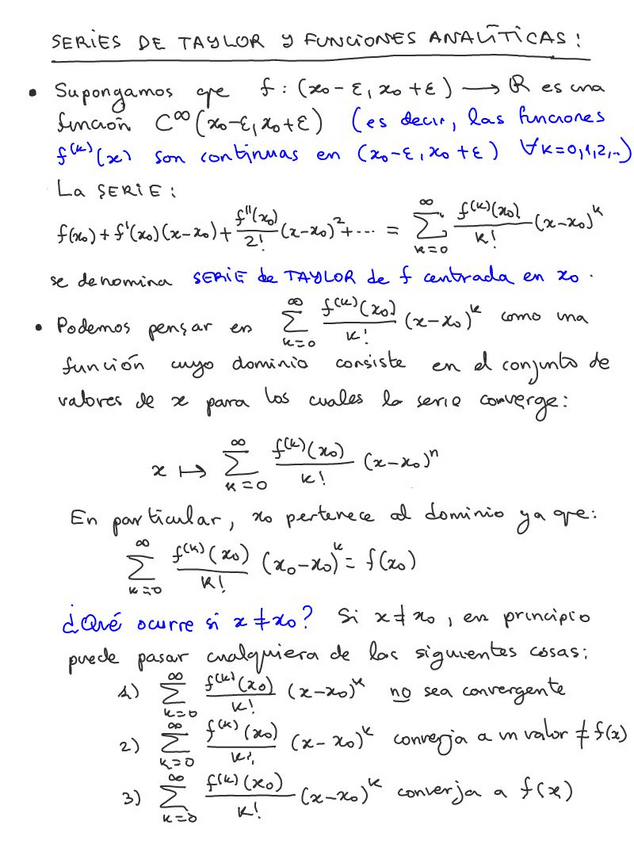 SERIES DE TAYLOR Y FUNCIONES ANALÍTICAS:
• Supongamos que f: (x₀ - ε, x₀ + ε) ⟶ ℝ es una
función C^∞(x₀-ε, x₀+ε) (es decir, las funciones
f^(k)(x) son continuas en (x₀-ε, x₀+ε) ∀k=0,1,2,..)
La SERIE:
f(x₀) + f'(x₀)(x-x₀) + f''(x₀)/2! (x-x₀)² + ... = ∑_{k=0}^∞ f^(k)(x₀)/k! (x-x₀)^k
se denomina SERIE de TAYLOR de f centrada en x₀.
• Podemos pensar en ∑_{k=0}^∞ f^(k)(x₀)/k! (x-x₀)^k como una
función cuyo dominio consiste en el conjunto de
valores de x para los cuales la serie converge:
x ↦ ∑_{k=0}^∞ f^(k)(x₀)/k! (x-x₀)^n
En particular, x₀ pertenece al dominio ya que:
∑_{k=0}^∞ f^(k)(x₀)/k! (x₀-x₀)^k = f(x₀)
¿Qué ocurre si x ≠ x₀? Si x ≠ x₀, en principio
puede pasar cualquiera de las siguientes cosas:
1) ∑_{k=0}^∞ f^(k)(x₀)/k! (x-x₀)^k no sea convergente
2) ∑_{k=0}^∞ f^(k)(x₀)/k! (x-x₀)^k converja a un valor ≠ f(x)
3) ∑_{k=0}^∞ f^(k)(x₀)/k! (x-x₀)^k converja a f(x)